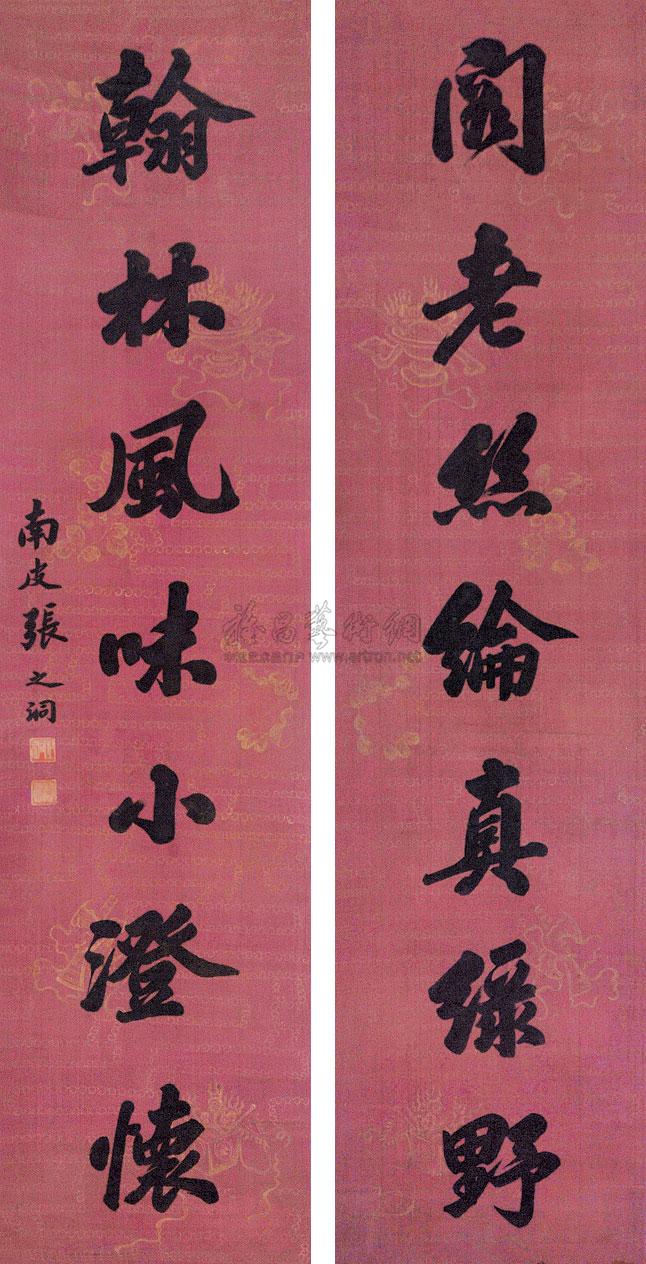 閣老絲綸真綠野
翰林風味小澄懷
南皮張之洞
雅昌藝術網
www.artron.net